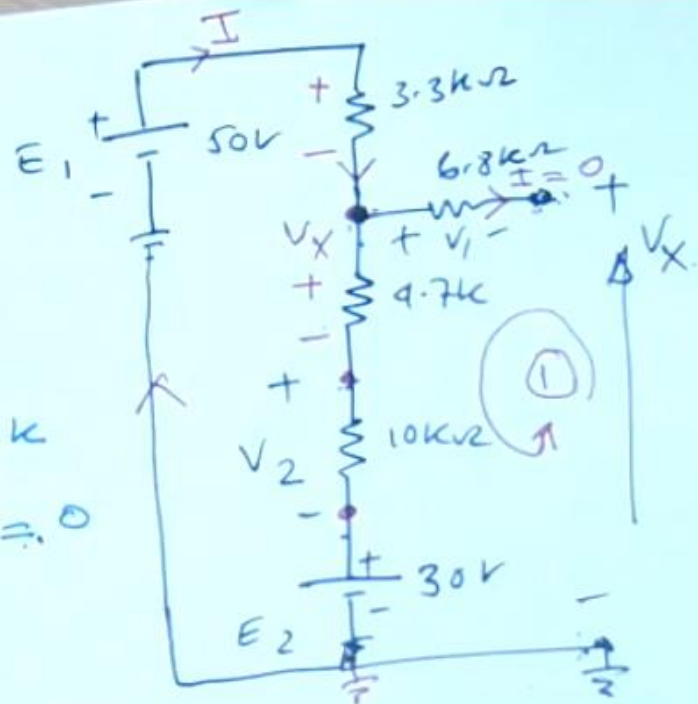 I
+ 3.3kΩ
E1 + 50V
-
-
6.8kΩ I = 0
+
Vx + V1 -
Vx
+ 4.7k
-
+
1
k
V2 10KΩ
= 0
-
+ 30V
-
E2
-